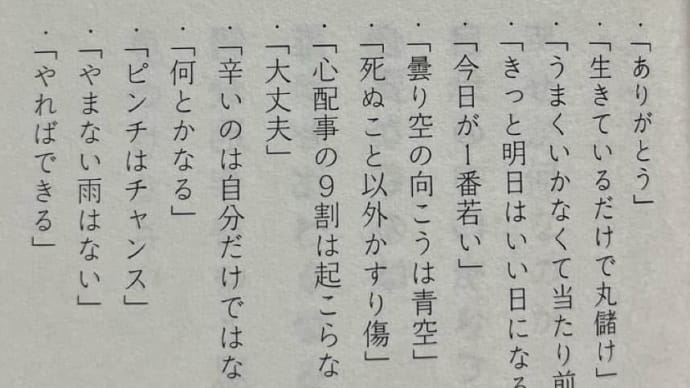 ・「ありがとう」
・「生きているだけで丸儲け」
・「うまくいかなくて当たり前
・「きっと明日はいい日になる
・「今日が1番若い」
・「曇り空の向こうは青空」
・「死ぬこと以外かすり傷」
・「心配事の9割は起こらな
・「大丈夫」
・「辛いのは自分だけではな
・「何とかなる」
・「ピンチはチャンス」
・「やまない雨はない」
・「やればできる」